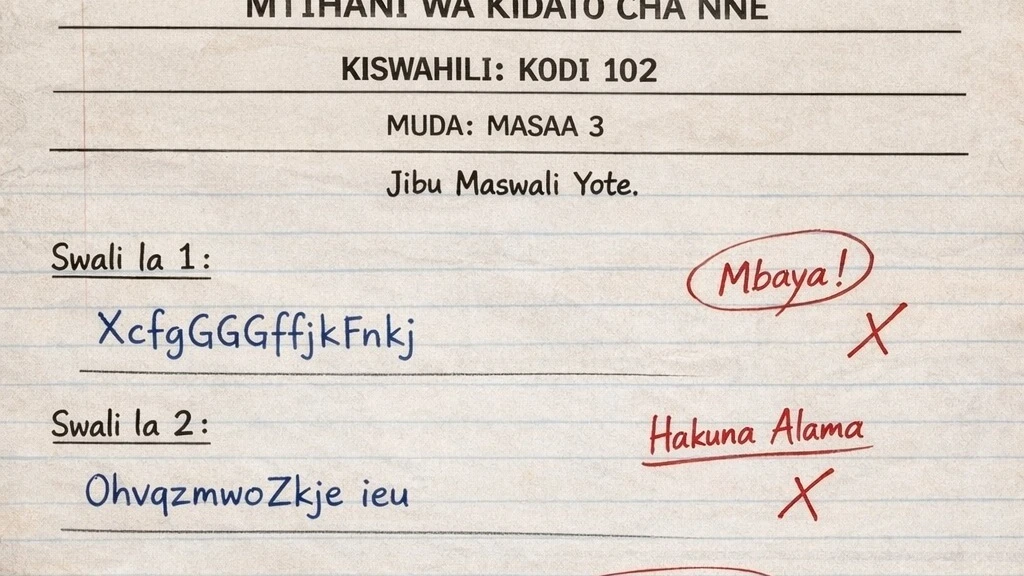 MTIHANI WA KIDATO CHA NNE
KISWAHILI: KODI 102
MUDA: MASAA 3
Jibu Maswali Yote.
Swali la 1:
Mbaya!
XcfgGGGffjkFnkj
X
Swali la 2:
Hakuna Alama
OhvqzmwoZkje ieu
X